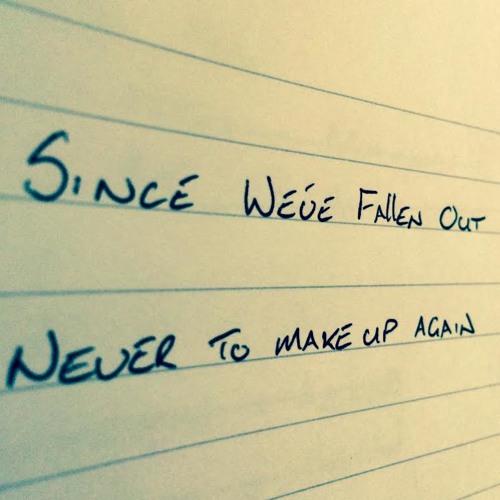 Since We've Fallen Out
Never to make up again